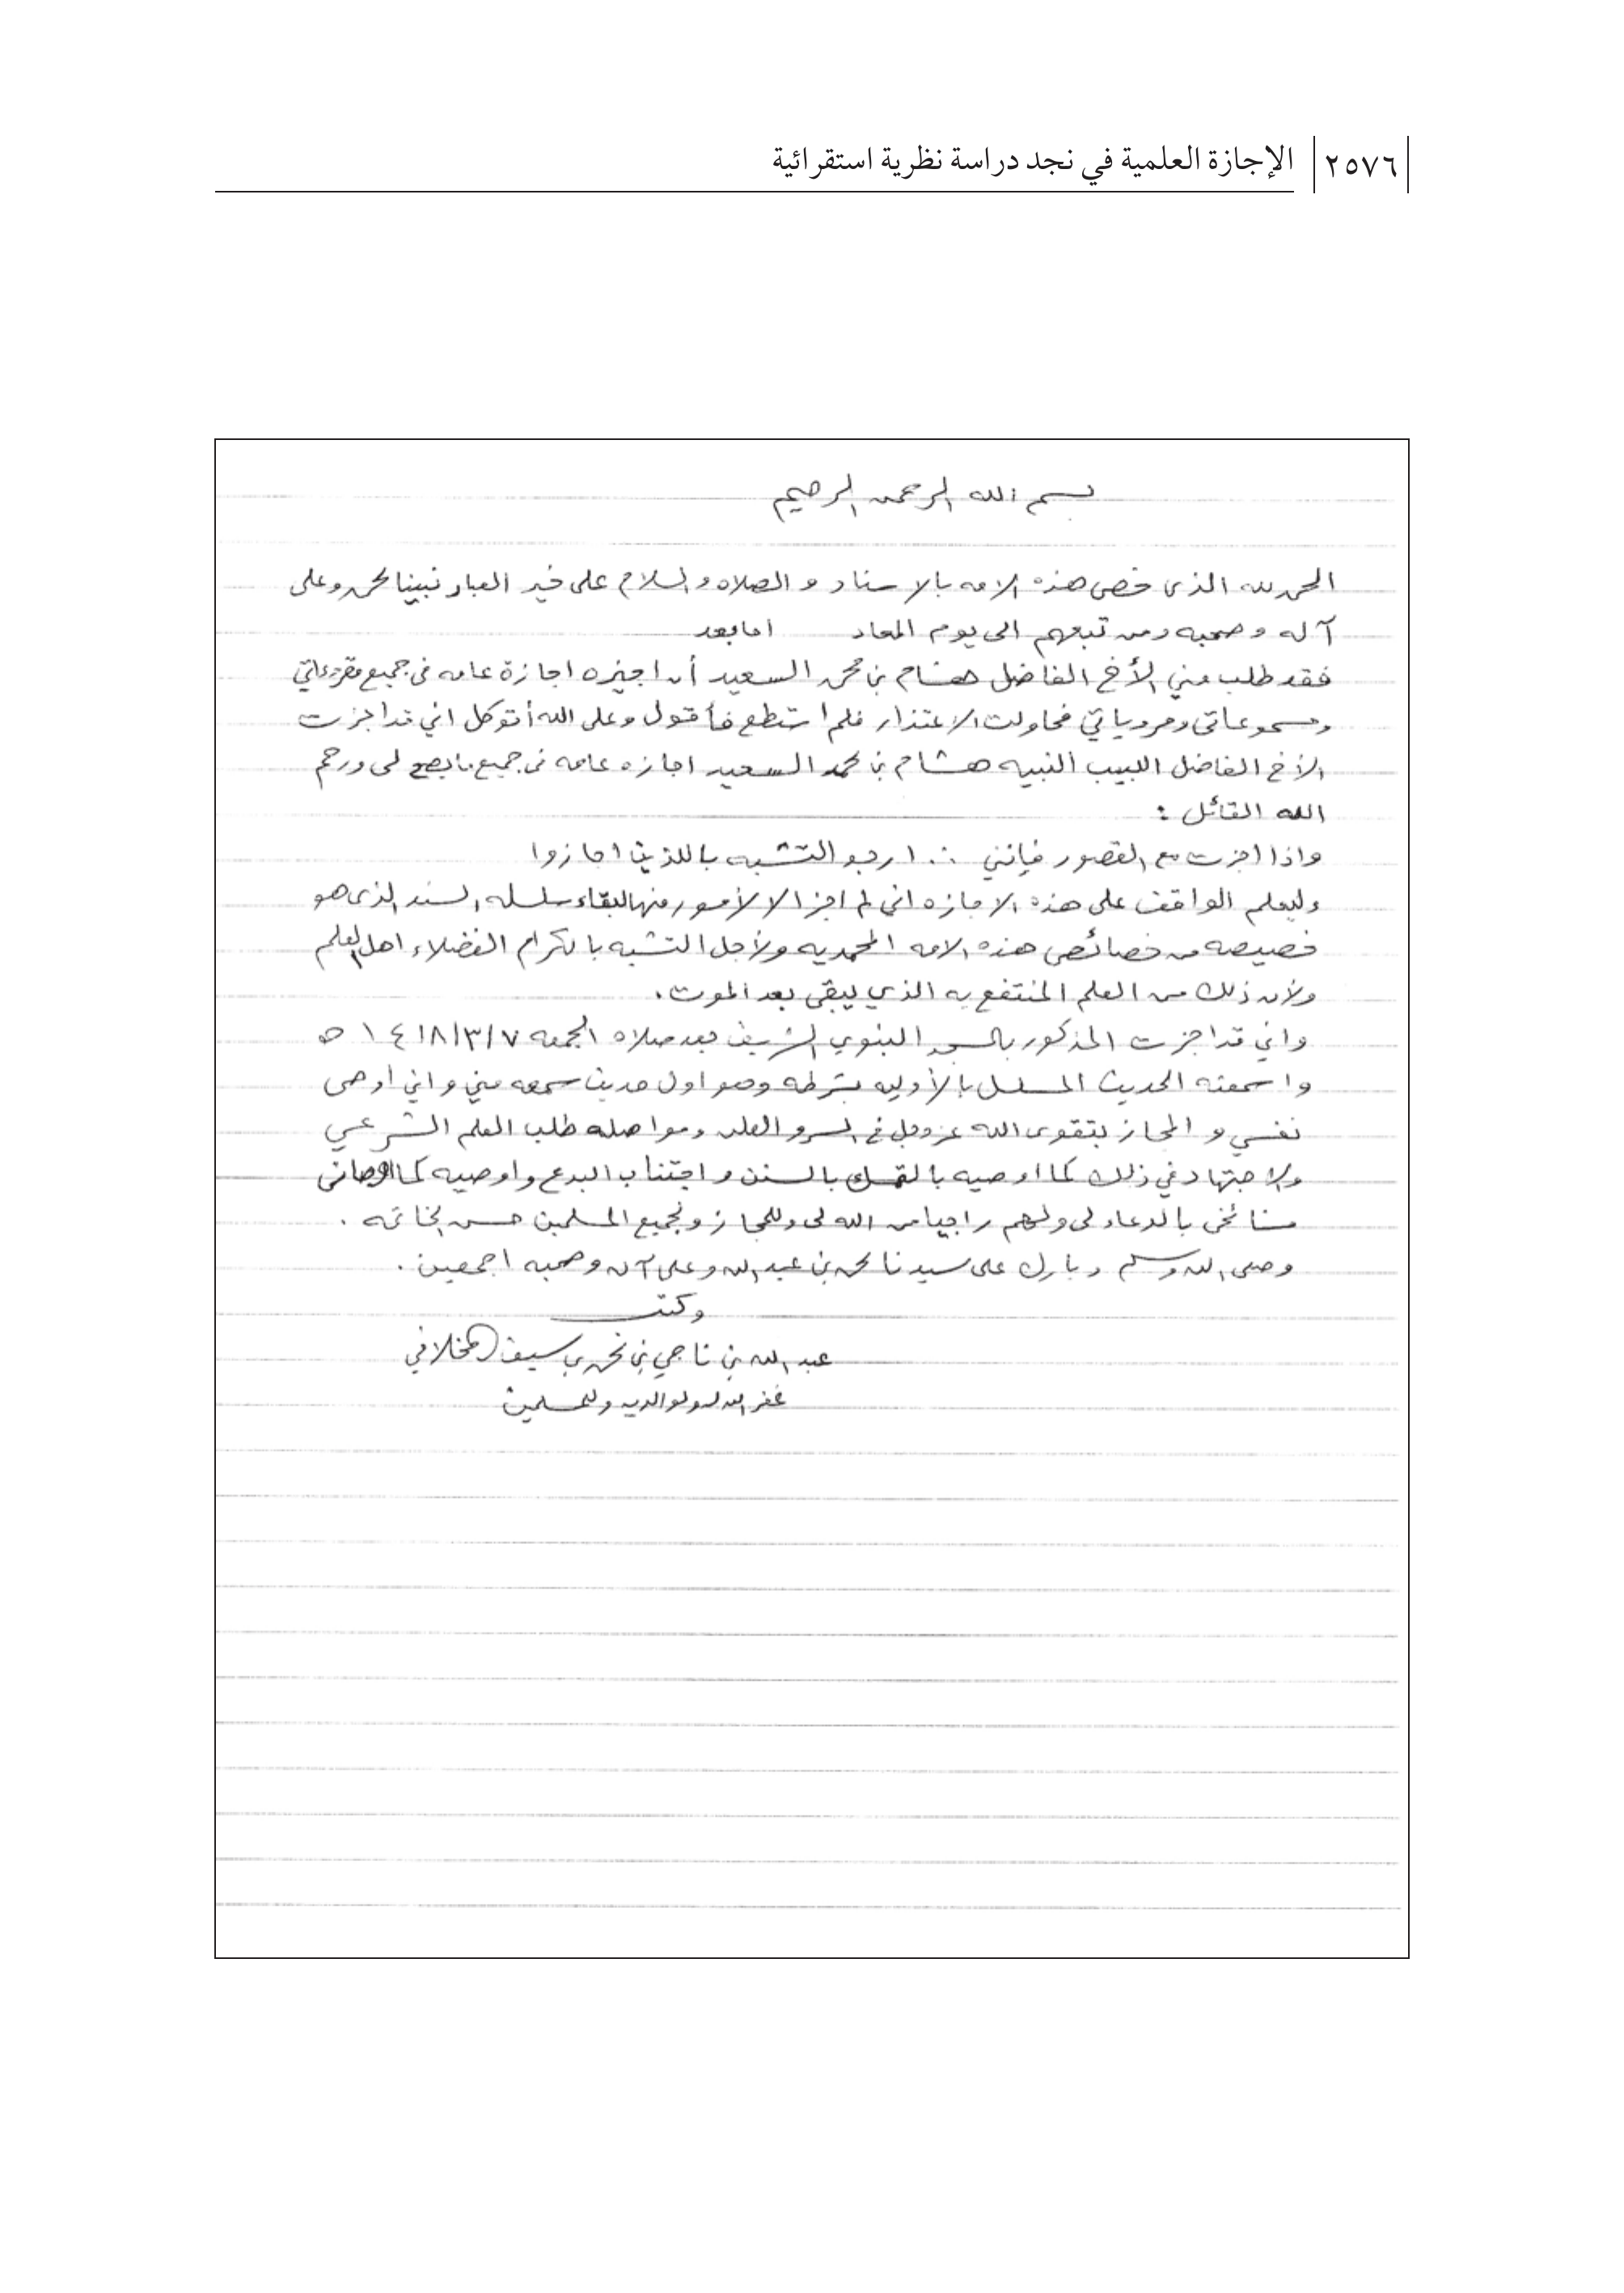 ٢٥٧٦ الإجازة العلمية في نجد دراسة نظرية استقرائية
بسم الله الرحمن الرحيم
الحمد لله الذى خص هذه الامه بالاسناد والصلاه والسلام على خير العباد نبينا محمد وعلى
آله وصحبه ومن تبعهم الى يوم المعاد اما بعد
فقد طلب مني الأخ الفاضل هشام بن محمد السعيد أن اجيزه اجازة عامه فى جميع مقروءاتي
ومسموعاتى ومروياتي فحاولت الاعتذار فلم استطع فأقول وعلى الله أتوكل اني قد اجزت
الأخ الفاضل اللبيب النبيه هشام بن محمد السعيد اجازه عامه فى جميع ما يصح لى ورحم
الله القائل :
واذا اجزت مع القصور فإنني ∴ ارجو التشبه باللذين اجازوا
وليعلم الواقف على هذه الاجازه انى لم اجز الا لأمور منها البقاء سلسله السند الذى هو
خصيصه من خصائص هذه الامه المحمديه ولأجل التشبه بالكرام الفضلاء اهل العلم
ولأن ذلك من العلم المنتفع به الذي يبقى بعد الموت .
واني قد اجزت المذكور بالمسجد النبوي الشريف بعد صلاه الجمعه ١٤١٨/٣/٧ ه
واسمعته الحديث المسلسل بالأوليه بشرطه وهو اول حديث سمعه مني واني أوصى
نفسي والمجاز بتقوى الله عز وجل في السر والعلن ومواصله طلب العلم الشرعي
والاجتهاد في ذلك كما اوصيه بالتمسك بالسنن واجتناب البدع واوصيه كما اوصانى
مشائخى بالدعاء لى ولهم راجيا من الله لى وللمجاز ولجميع المسلمين حسن الخاتمه .
وصلى الله وسلم وبارك على سيدنا محمد بن عبد الله وعلى آله وصحبه اجمعين .
وكتب
عبد الله بن ناجي بن محمد بن سيف المخلافي
غفر الله له ولوالديه وللمسلمين